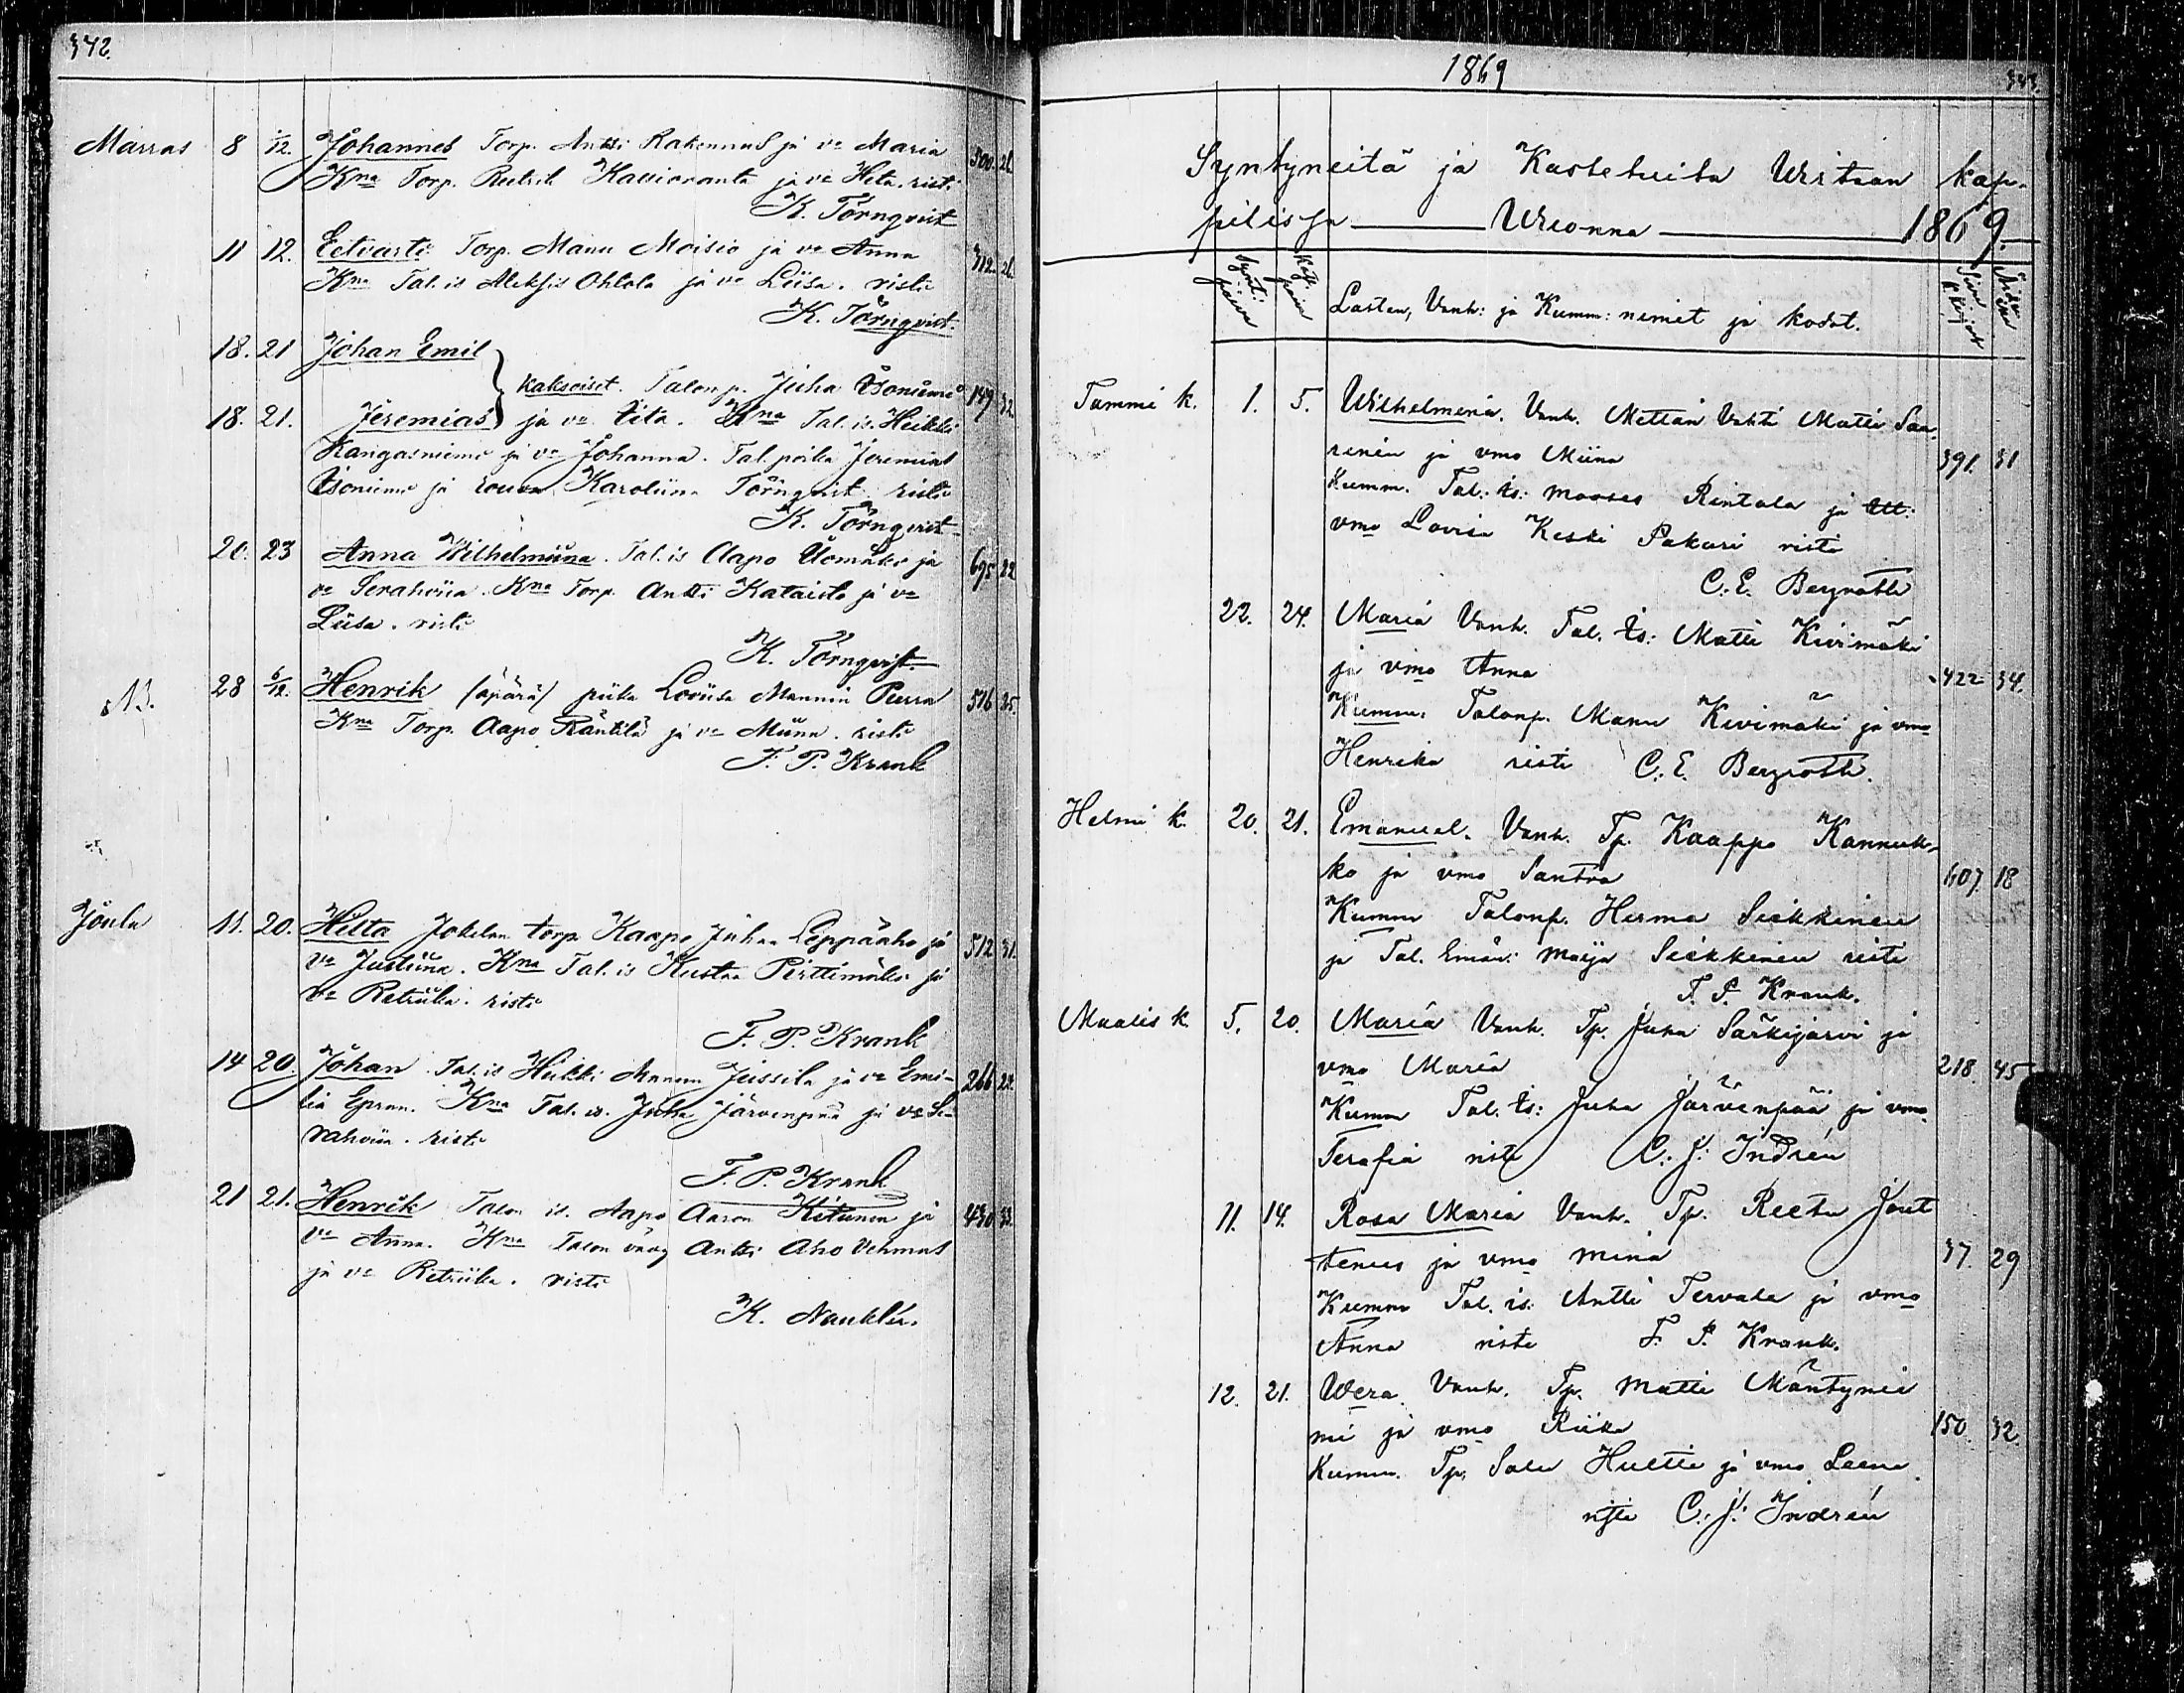 342.
Marras 8 1/12. Johannes Torp. Antti Rakennus ja vo Maria 500. 26.
Kna Torp. Reetrik Kauioranta ja vo Heta. risti
K. Törnqvist
11 12. Eetvarti Torp. Manu Moisio ja vo Anna 312. 26.
Kna Tal. is Aleksis Ohlola ja vo Liisa. risti
K. Törnqvist.
18. 21 Johan Emil
kaksoiset. Talonp. Juha Isoniemi 149 32.
18. 21. Jeremias ja vo Eita. Kna Tal. is. Heikki
Kangasniemi ja vo Johanna. Tal. poika Jeremias
Isoniemi ja rouva Karoliina Törnqvist risti
K. Törnqvist
20. 23 Anna Wilhelmiina. Tal. is Aapo Uomäki ja 695 22
vo Serahviia. Kna Torp. Antti Kataisto ja vo
Liisa. risti
K. Törnqvist.
N.B. 28 6/12. Henrik (äpärä) piika Loviisa Mannin Purra 516 25.
Kna Torp. Aapo Räntilä ja vo Miina. risti
F. P. Krank
Joulu 11. 20. Hilta Jokelan torp. Kaapo Juhan Leppäaho ja 512 31.
vo Justiina. Kna Tal. is Kustaa Pirttimäki ja
vo Retriika. risti
F. P. Krank
14 20. Johan Tal. is Heikki Manun Jussila ja vo Emi- 266 22.
lia Epran. Kna Tal. is. Juha Järvenpää ja vo Se-
rahviia. risti
F. P. Krank
21 21. Henrik Talon is. Aapo Aaron Kitunen ja 430 33.
vo Anna. Kna Talon vävy Antti Aho Vehmas
ja vo Retriika. risti
K. Nauklér.
1869 343.
Syntyneitä ja Kastetuita Wirtain kap-
pelissa Wuonna 1869.
Synt: päivä Kast. päivä Lasten, Vanh: ja Kumm: nimet ja kodot.
Tammi k. 1. 5. Wilhelmina. Vanh. Mettän Vahti Matti Saa-
rinen ja vmo Miina 391. 31
Kumm. Tal: is: Mooses Rintala ja
vmo Lovisa Keski Pakari risti
C. E. Bergroth
22. 24. Maria Vanh. Tal. is: Matti Kivimäki
ja vmo Anna 422 34.
Kumm. Talonp. Manu Kivimäki ja vmo
Henrika risti C. E. Bergroth.
Helmi k. 20. 21. Emanuel. Vanh. Tp. Kaappo Kannuk-
ko ja vmo Santra 607. 18
Kumm Talonp. Herma Siekkinen
ja Tal. Emän: Maija Siekkinen risti
F. P. Krank.
Maalis k. 5. 20. Maria Vanh. Tp. Juha Särkijärvi ja
vmo Maria 218. 45
Kumm Tal. is: Juha Järvenpää ja vmo
Serafia risti C. J. Indrén
11. 14. Rosa Maria Vanh. Tp. Reetu Jout
tenus ja vmo Mina 37. 29
Kumm Tal. is: Antti Tervala ja vmo
Anna risti F. P. Krank.
12. 21. Wera. Vanh. Tp. Matti Mäntynie
mi ja vmo Riika 150. 32.
Kumm. Tp. Salu Huttu ja vmo Leena
risti C. J. Indrén